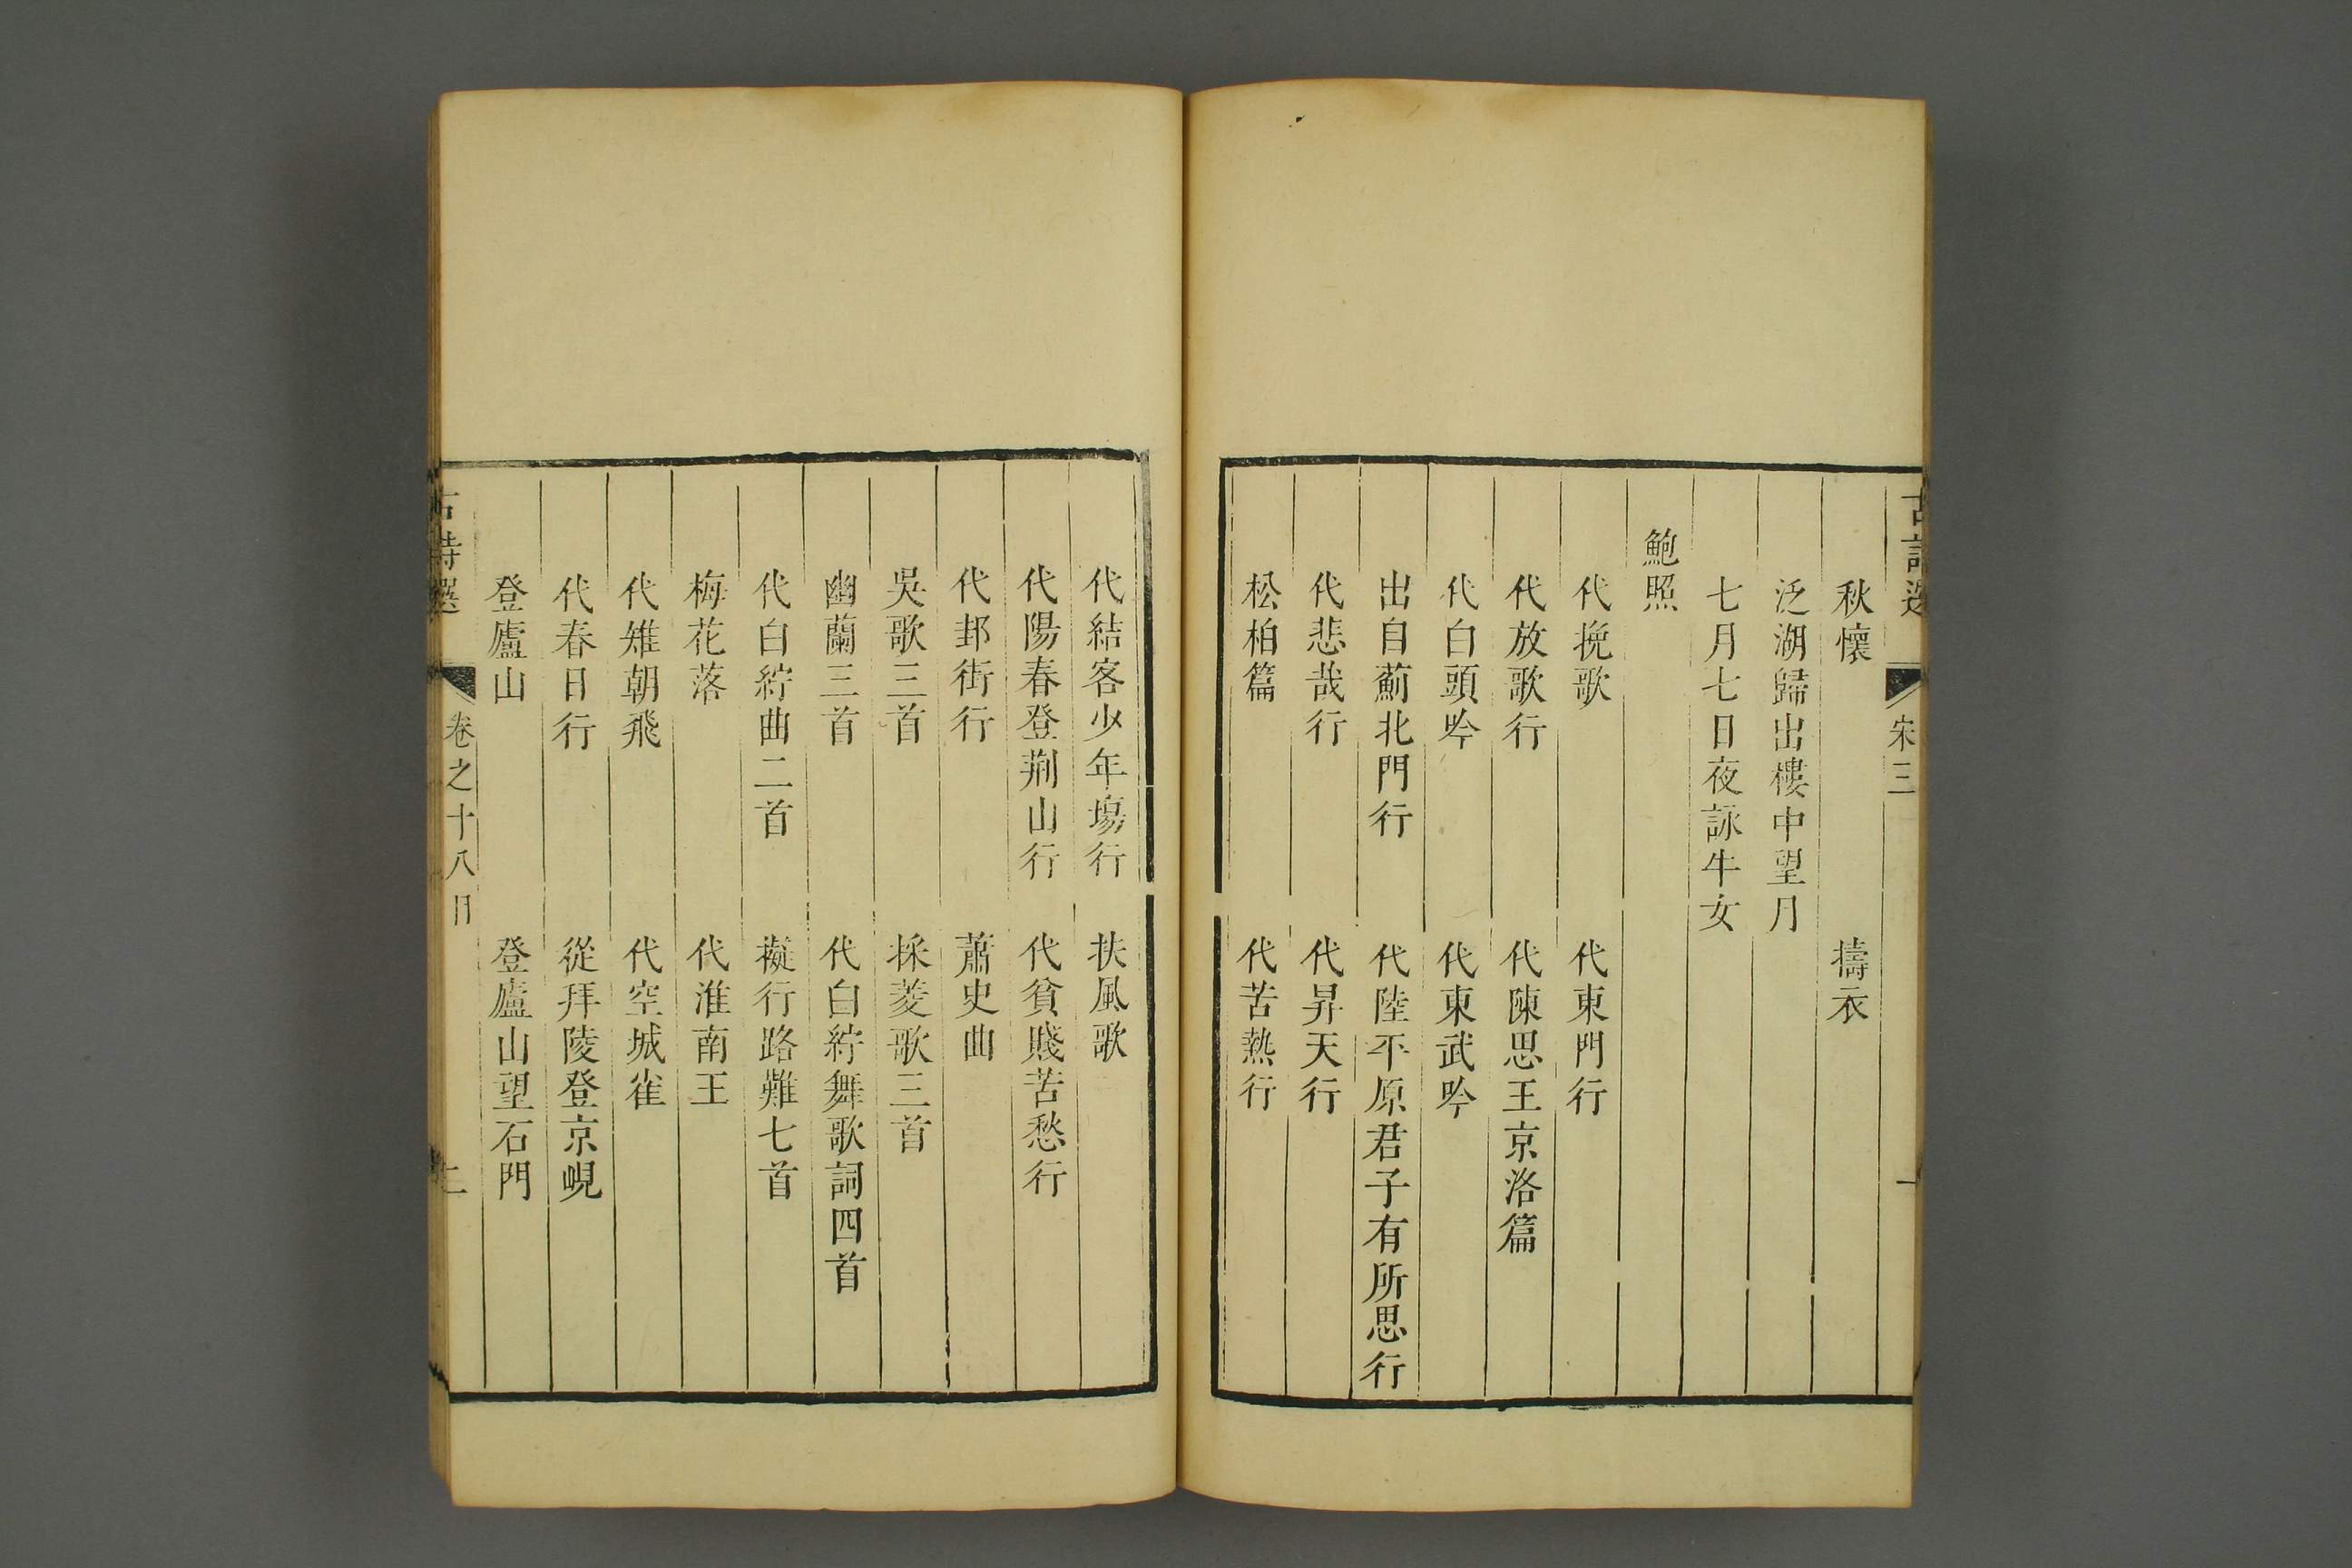 古詩選 宋三 一
秋懷 擣衣
泛湖歸出樓中望月
七月七日夜詠牛女
鮑照
代挽歌 代東門行
代放歌行 代陳思王京洛篇
代白頭吟 代東武吟
出自薊北門行 代陸平原君子有所思行
代悲哉行 代昇天行
松柏篇 代苦熱行
代結客少年塲行 扶風歌
代陽春登荆山行 代貧賤苦愁行
代邽街行 蕭史曲
吳歌三首 採菱歌三首
幽蘭三首 代白紵舞歌詞四首
代白紵曲二首 擬行路難七首
梅花落 代淮南王
代雉朝飛 代空城雀
代春日行 從拜陵登京峴
登廬山 登廬山望石門
古詩選 卷之十八目 二